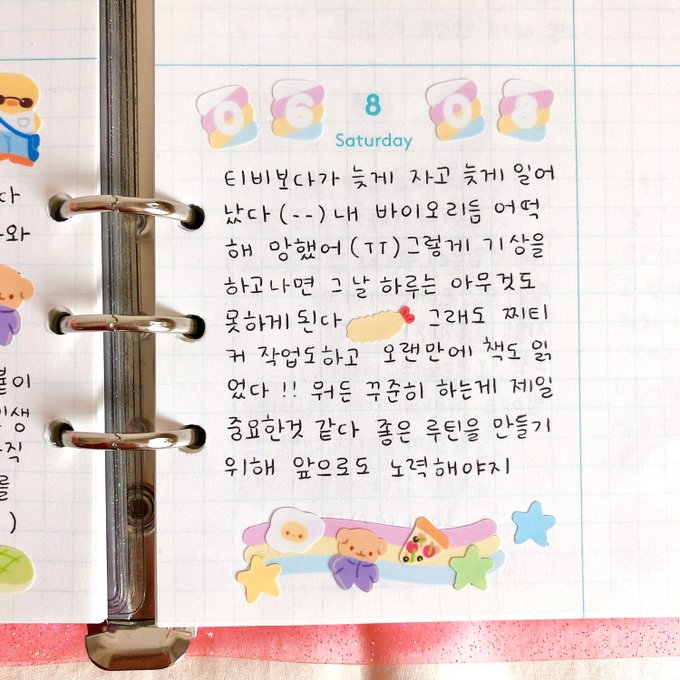 06 8 08
Saturday
티비보다가 늦게 자고 늦게 일어
났다 (--) 내 바이오리듬 어떡
해 망했어 (TT) 그렇게 기상을
하고나면 그날 하루는 아무것도
못하게된다 그래도 찌티
커 작업도하고 오랜만에 책도 읽
었다 !! 뭐든 꾸준히 하는게 제일
중요한것 같다 좋은 루틴을 만들기
위해 앞으로도 노력해야지
다
와
이
생
직
를
)